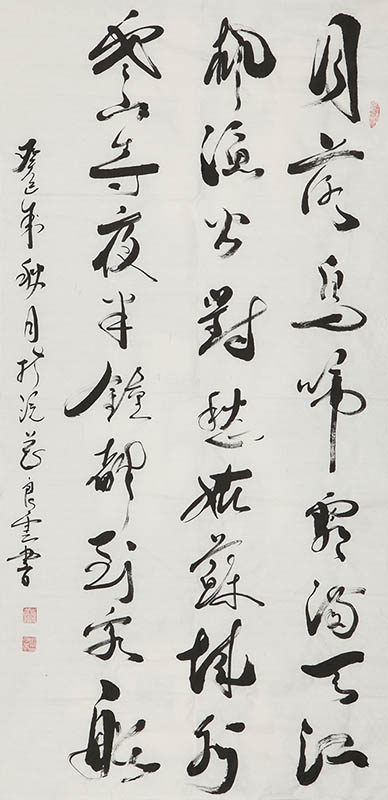 月落烏啼霜滿天江
楓漁火對愁姑蘇城外
寒山寺夜半鐘聲到客船
癸巳年秋月於良書